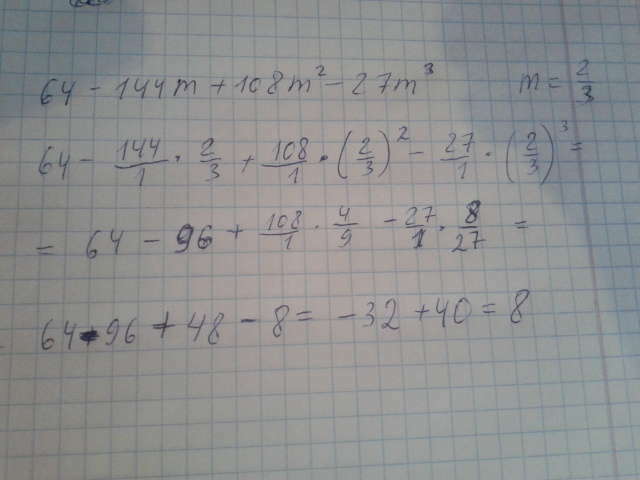 64 - 144m + 108m² - 27m³ m = 2/3
64 - 144/1 · 2/3 + 108/1 · (2/3)² - 27/1 · (2/3)³ =
= 64 - 96 + 108/1 · 4/9 - 27/1 · 8/27 =
64 - 96 + 48 - 8 = - 32 + 40 = 8